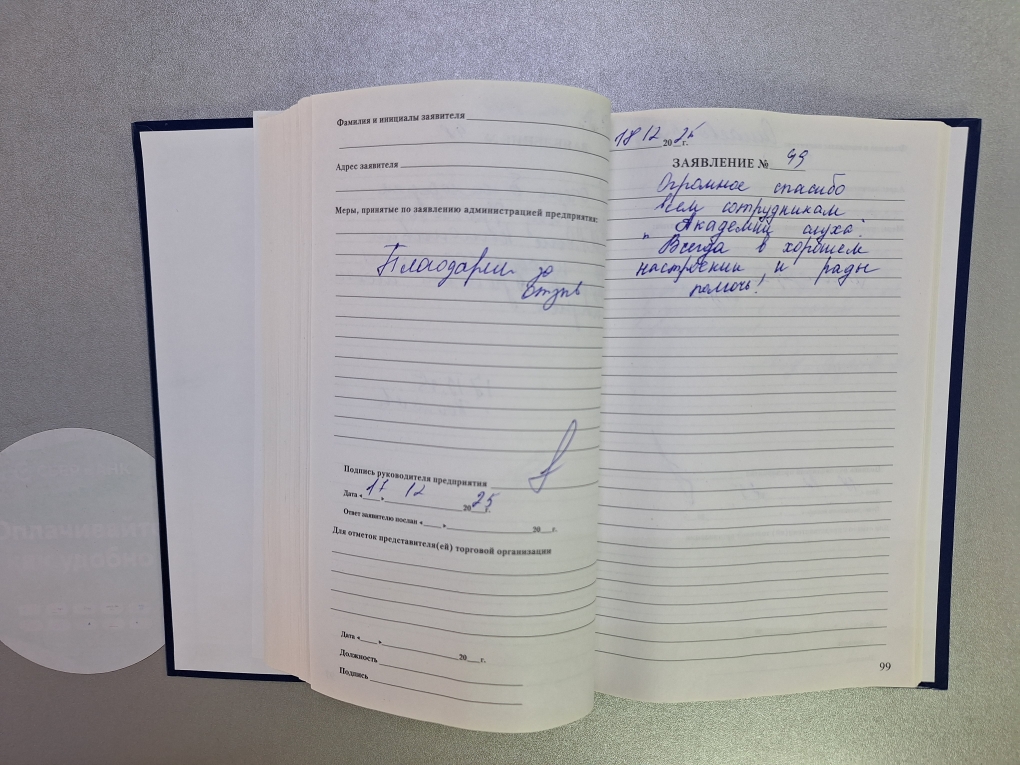 Фамилия и инициалы заявителя
Адрес заявителя
Меры, принятые по заявлению администрацией предприятия:
Благодарим за
отзыв
Подпись руководителя предприятия
Дата «17» 12 2025 г.
Ответ заявителю послан « » 20 г.
Для отметок представителя(ей) торговой организации
Дата « » 20 г.
Должность
Подпись
18 12 2025 г.
ЗАЯВЛЕНИЕ № 99
Огромное спасибо
всем сотрудникам
"Академии слуха".
Всегда в хорошем
настроении, и рады
помочь!
99